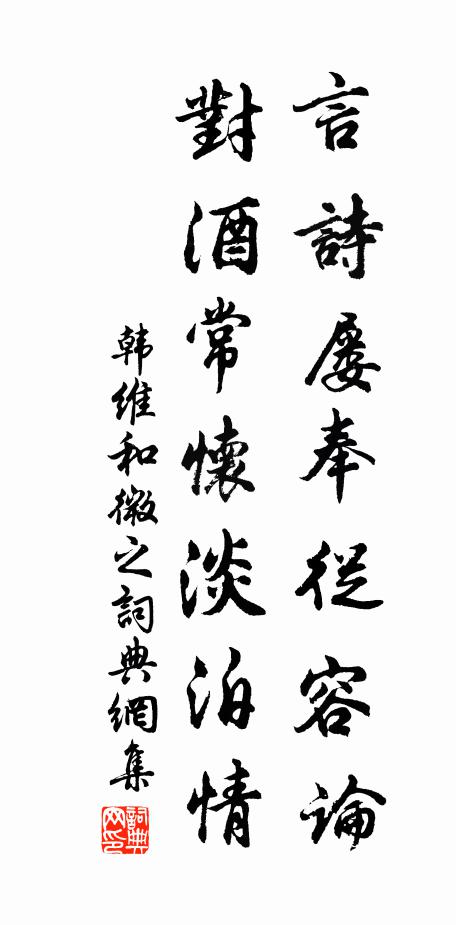 言詩屡奉從容論
對酒常懷淡泊情
韩维和微之詞典網集
詞典网印